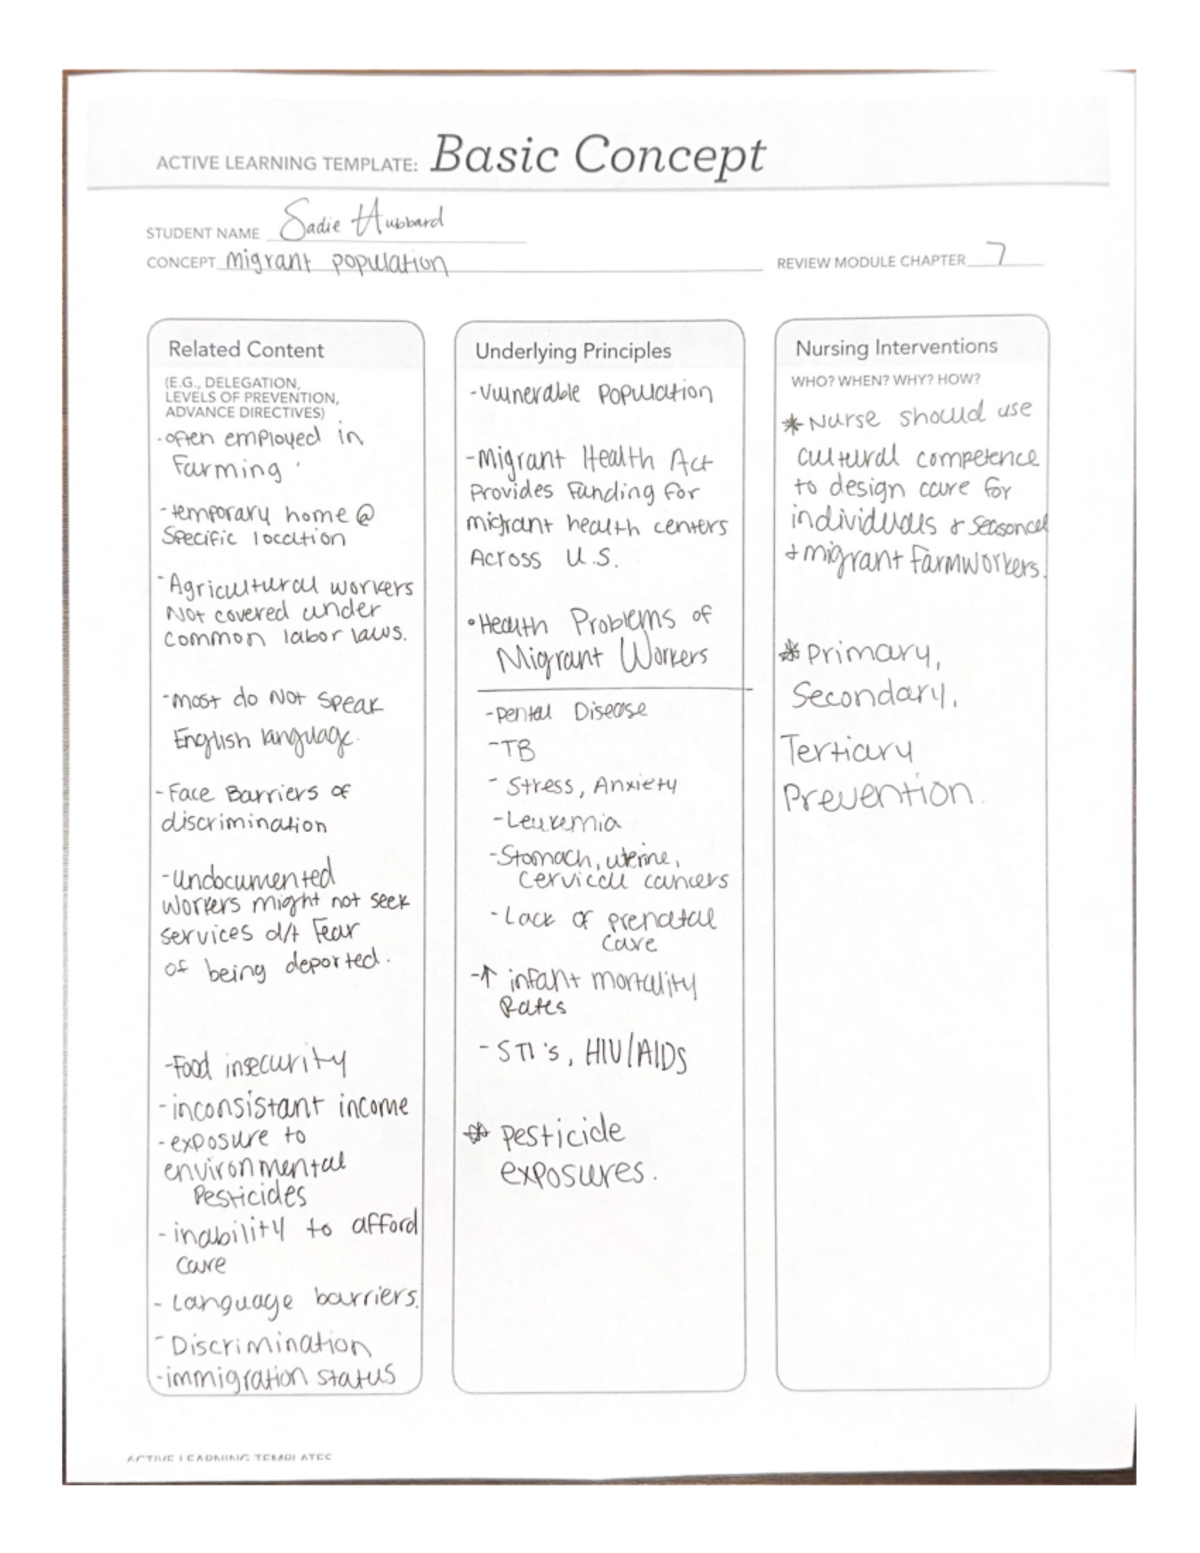 ACTIVE LEARNING TEMPLATE: Basic Concept
STUDENT NAME Sadie Hubbard
CONCEPT migrant population
REVIEW MODULE CHAPTER 7
Related Content
(E.G., DELEGATION,
LEVELS OF PREVENTION,
ADVANCE DIRECTIVES)
- often employed in
Farming
- temporary home @
Specific location
- Agricultural workers
Not covered under
common labor laws.
- most do Not speak
English language.
- Face Barriers of
discrimination
- Undocumented
workers might not seek
services d/t Fear
of being deported.
- Food insecurity
- inconsistant income
- exposure to
environmental
Pesticides
- inability to afford
care
- Language barriers.
- Discrimination
- immigration status
Underlying Principles
- Vulnerable Population
- Migrant Health Act
Provides Funding for
migrant health centers
Across U.S.
• Health Problems of
Migrant Workers
- Dental Disease
- TB
- Stress, Anxiety
- Leukemia
- Stomach, uterine,
cervical cancers
- Lack of prenatal
care
- ↑ infant mortality
Rates
- STI's, HIV/AIDS
* Pesticide
exposures.
Nursing Interventions
WHO? WHEN? WHY? HOW?
* Nurse should use
cultural competence
to design care for
individuals & seasonal
& migrant farmworkers.
* Primary,
Secondary,
Tertiary
Prevention.
ACTIVE LEARNING TEMPLATES